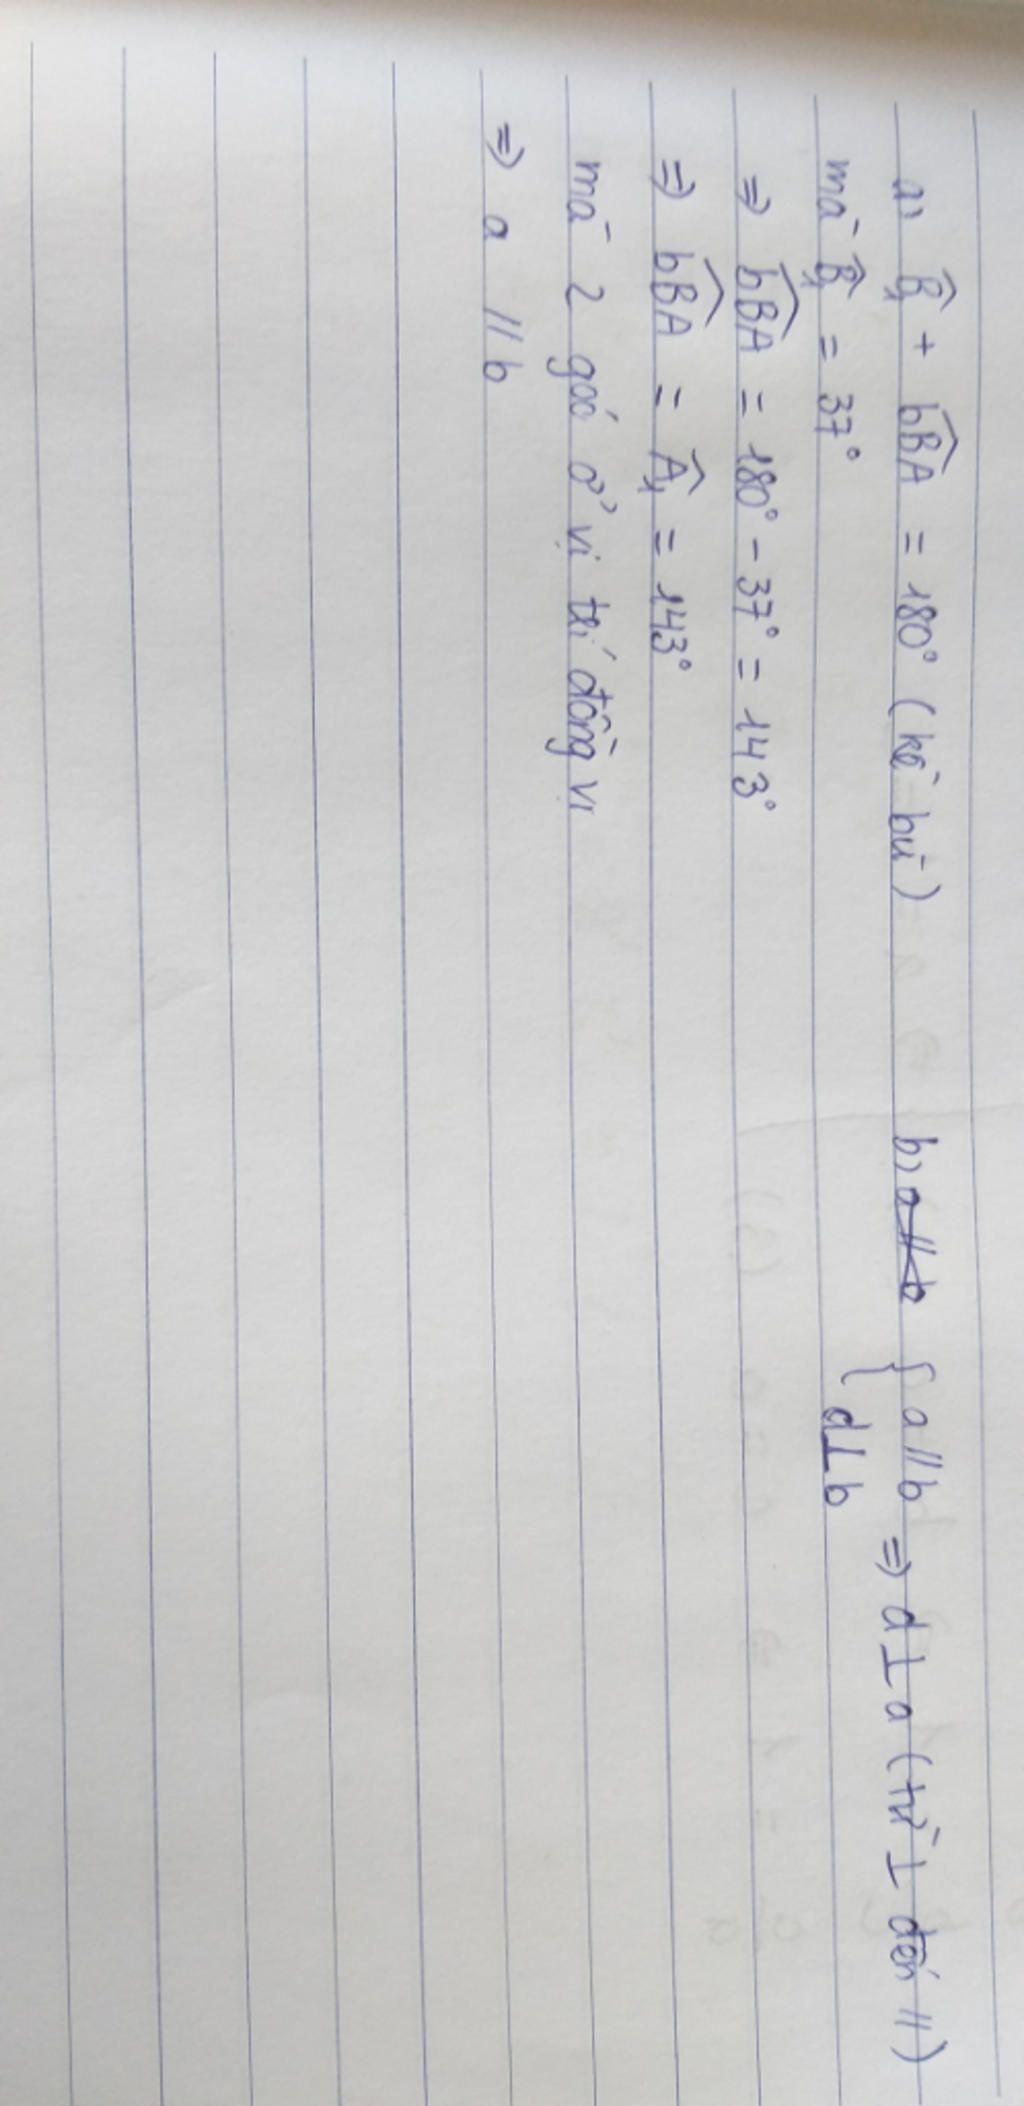 a) B̂₁ + b̂BA = 180° (kề bù)
mà B̂₁ = 37°
=> b̂BA = 180° - 37° = 143°
=> b̂BA = Â₁ = 143°
mà 2 goó ở vị trí đồng vị
=> a // b
b) a // b { a // b => d ⊥ a (từ ⊥ đến //)
d ⊥ b